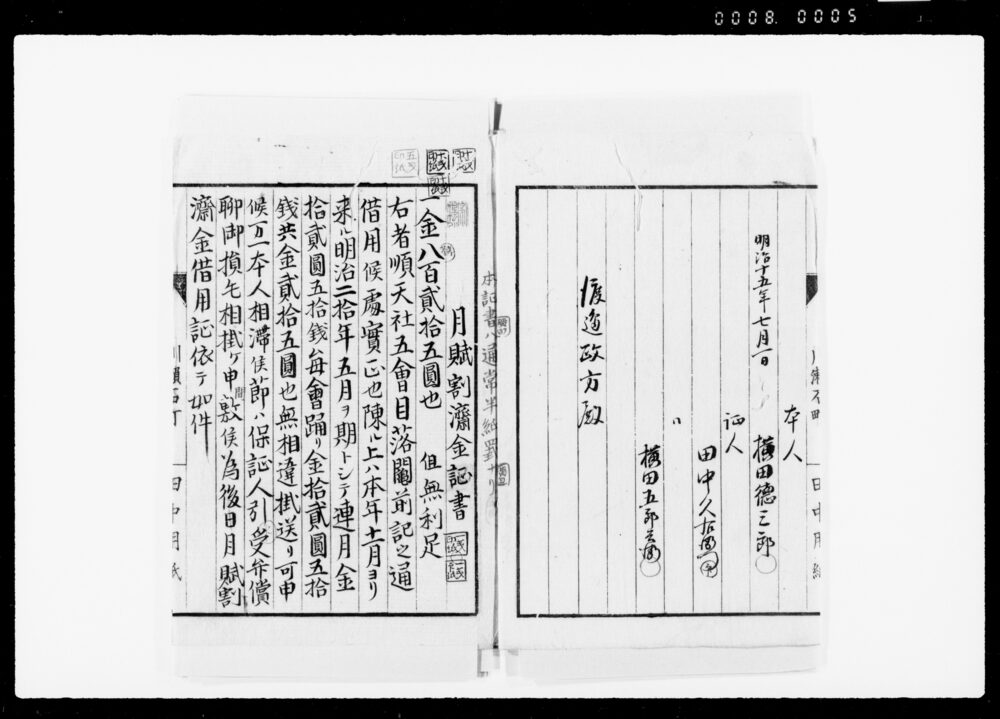 0008. 0005
田中用紙
本人
明治十五年七月一日
横田德三郎
証人
田中久右衛門
〃
横田五郎兵衛
渡邉政方殿
本証書ハ通常半紙罫ナリ
月賦割濟金証書
一金八百貳拾五圓也 但無利足
右者順天社五會目落䦰前記之通
借用候處實正也陳ル上ハ本年十一月ヨリ
来ル明治二拾年五月ヲ期トシテ連月金
拾貳圓五拾錢毎會踊リ金拾貳圓五拾
錢共金貳拾五圓也無相違掛送リ可申
候万一本人相滞候節ハ保証人引受弁償
聊御損毛相掛ケ申間敷候為後日月賦割
濟金借用証依テ如件
川瀬石町
田中用紙